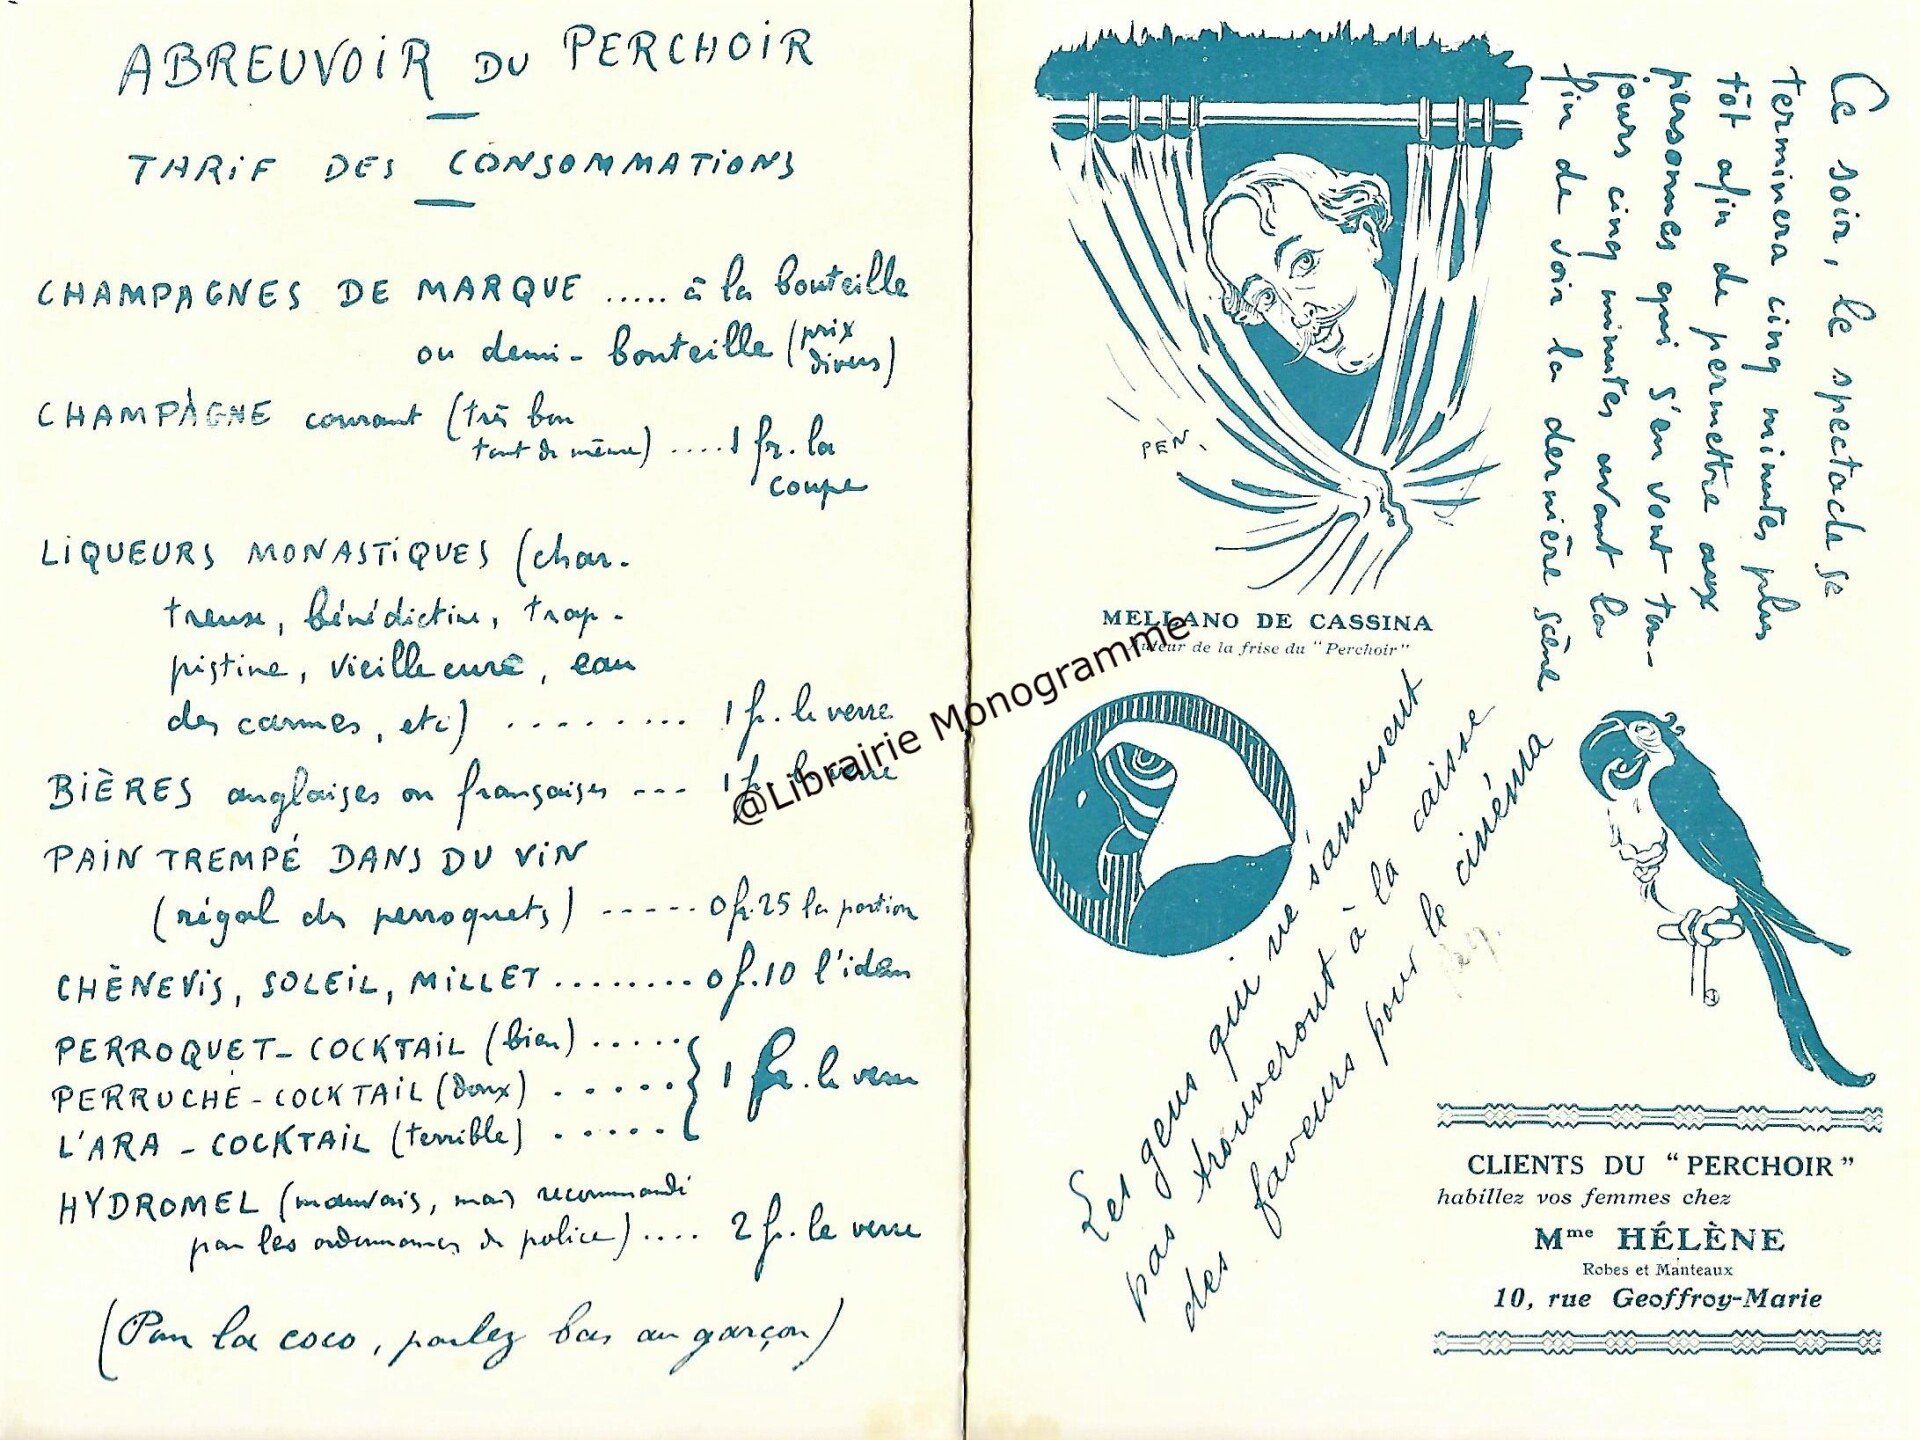 ABREUVOIR DU PERCHOIR
TARIF DES CONSOMMATIONS
CHAMPAGNES DE MARQUE ..... à la bouteille
ou demi-bouteille (prix
divers)
CHAMPAGNE courant (très bon
tout de même) .... 1 fr. la
coupe
LIQUEURS MONASTIQUES (char-
treuse, bénédictine, trap-
pistine, vieille cure, eau
des carmes, etc) ......... 1 fr. le verre
BIÈRES anglaises ou françaises --- 1 fr. le verre
PAIN TREMPÉ DANS DU VIN
(régal des perroquets) ----- 0 fr. 25 la portion
CHÈNEVIS, SOLEIL, MILLET ........ 0 f. 10 l'idem
PERROQUET-COCKTAIL (bien) .....
PERRUCHE-COCKTAIL (doux) ..... 1 fr. le verre
L'ARA-COCKTAIL (terrible) .....
HYDROMEL (mauvais, mais recommandé
par les ordonnances de police) .... 2 fr. le verre
(Pour la coco, parlez bas au garçon)
PEN.
MELLANO DE CASSINA
Auteur de la frise du "Perchoir"
Ce soir, le spectacle se
terminera cinq minutes plus
tôt afin de permettre aux
personnes qui s'en vont tou-
jours cinq minutes avant la
fin de voir la dernière scène
Les gens qui ne s'amusent
pas trouveront à la caisse
des faveurs pour le cinéma
CLIENTS DU "PERCHOIR"
habillez vos femmes chez
Mme HÉLÈNE
Robes et Manteaux
10, rue Geoffroy-Marie
@Librairie Monogramme